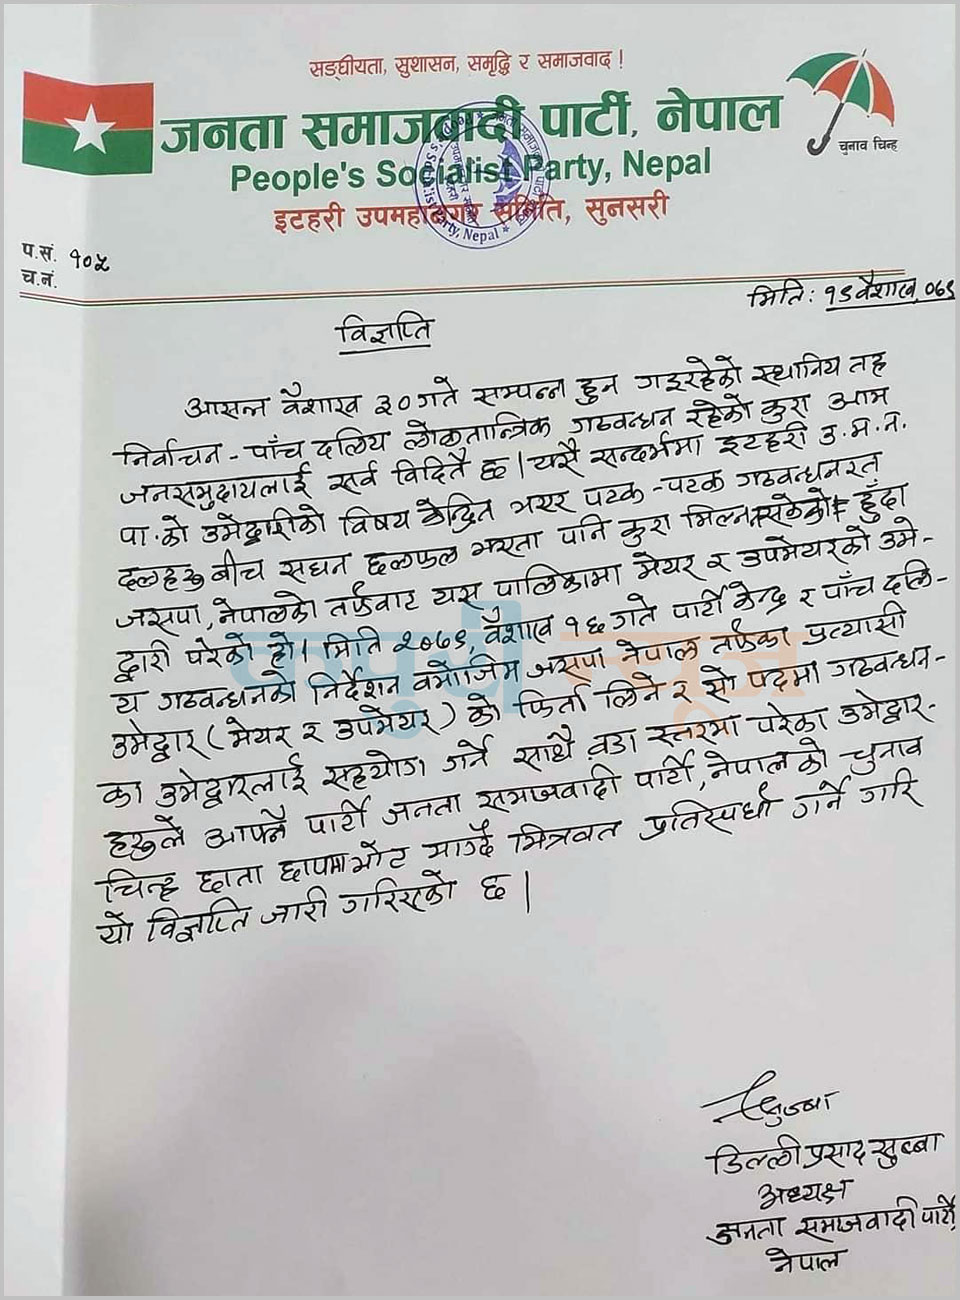 सङ्घीयता, सुशासन, समृद्धि र समाजवाद !
जनता समाजवादी पार्टी, नेपाल
People's Socialist Party, Nepal
इटहरी उपमहानगर समिति, सुनसरी
चुनाव चिन्ह
प.सं. १०५
च.नं.
मिति: १९ वैशाख, ०७९
विज्ञप्ति
आसन्न वैशाख ३० गते सम्पन्न हुन गइरहेको स्थानिय तह
निर्वाचन - पाँच दलिय लोकतान्त्रिक गठवन्धन रहेको कुरा आम
जनसमुदायलाई सर्व विदितै छ। यसै सन्दर्भमा इटहरी उ.म.न.
पा.को उमेद्वारीको विषय केन्द्रित भएर पटक-पटक गठवन्धनरत
दलहरु बीच सघन छलफल भएता पनि कुरा मिल्न नसकेको हुँदा
जसपा, नेपालको तर्फवाट यस पालिकामा मेयर र उपमेयरको उमे-
द्वारी परेको हो। मिति २०७९, वैशाख १६ गते पार्टी केन्द्र र पाँच दलि-
य गठवन्धनको निर्देशन वमोजिम जसपा नेपाल तर्फका प्रत्यासी
उमेद्वार (मेयर र उपमेयर) को फिर्ता लिने र सो पदमा गठवन्धन-
का उमेद्वारलाई सहयोग गर्ने साथै वडा स्तरमा परेका उमेद्वार-
हरुले आफ्नै पार्टी जनता समाजवादी पार्टी, नेपाल को चुनाव
चिन्ह छाता छापमा भोट माग्दै मित्रवत प्रतिस्पर्धा गर्ने गरि
यो विज्ञप्ति जारी गरिएको छ।
कपुरी न्यूज
सुब्बा
डिल्ली प्रसाद सुब्बा
अध्यक्ष
जनता समाजवादी पार्टी,
नेपाल